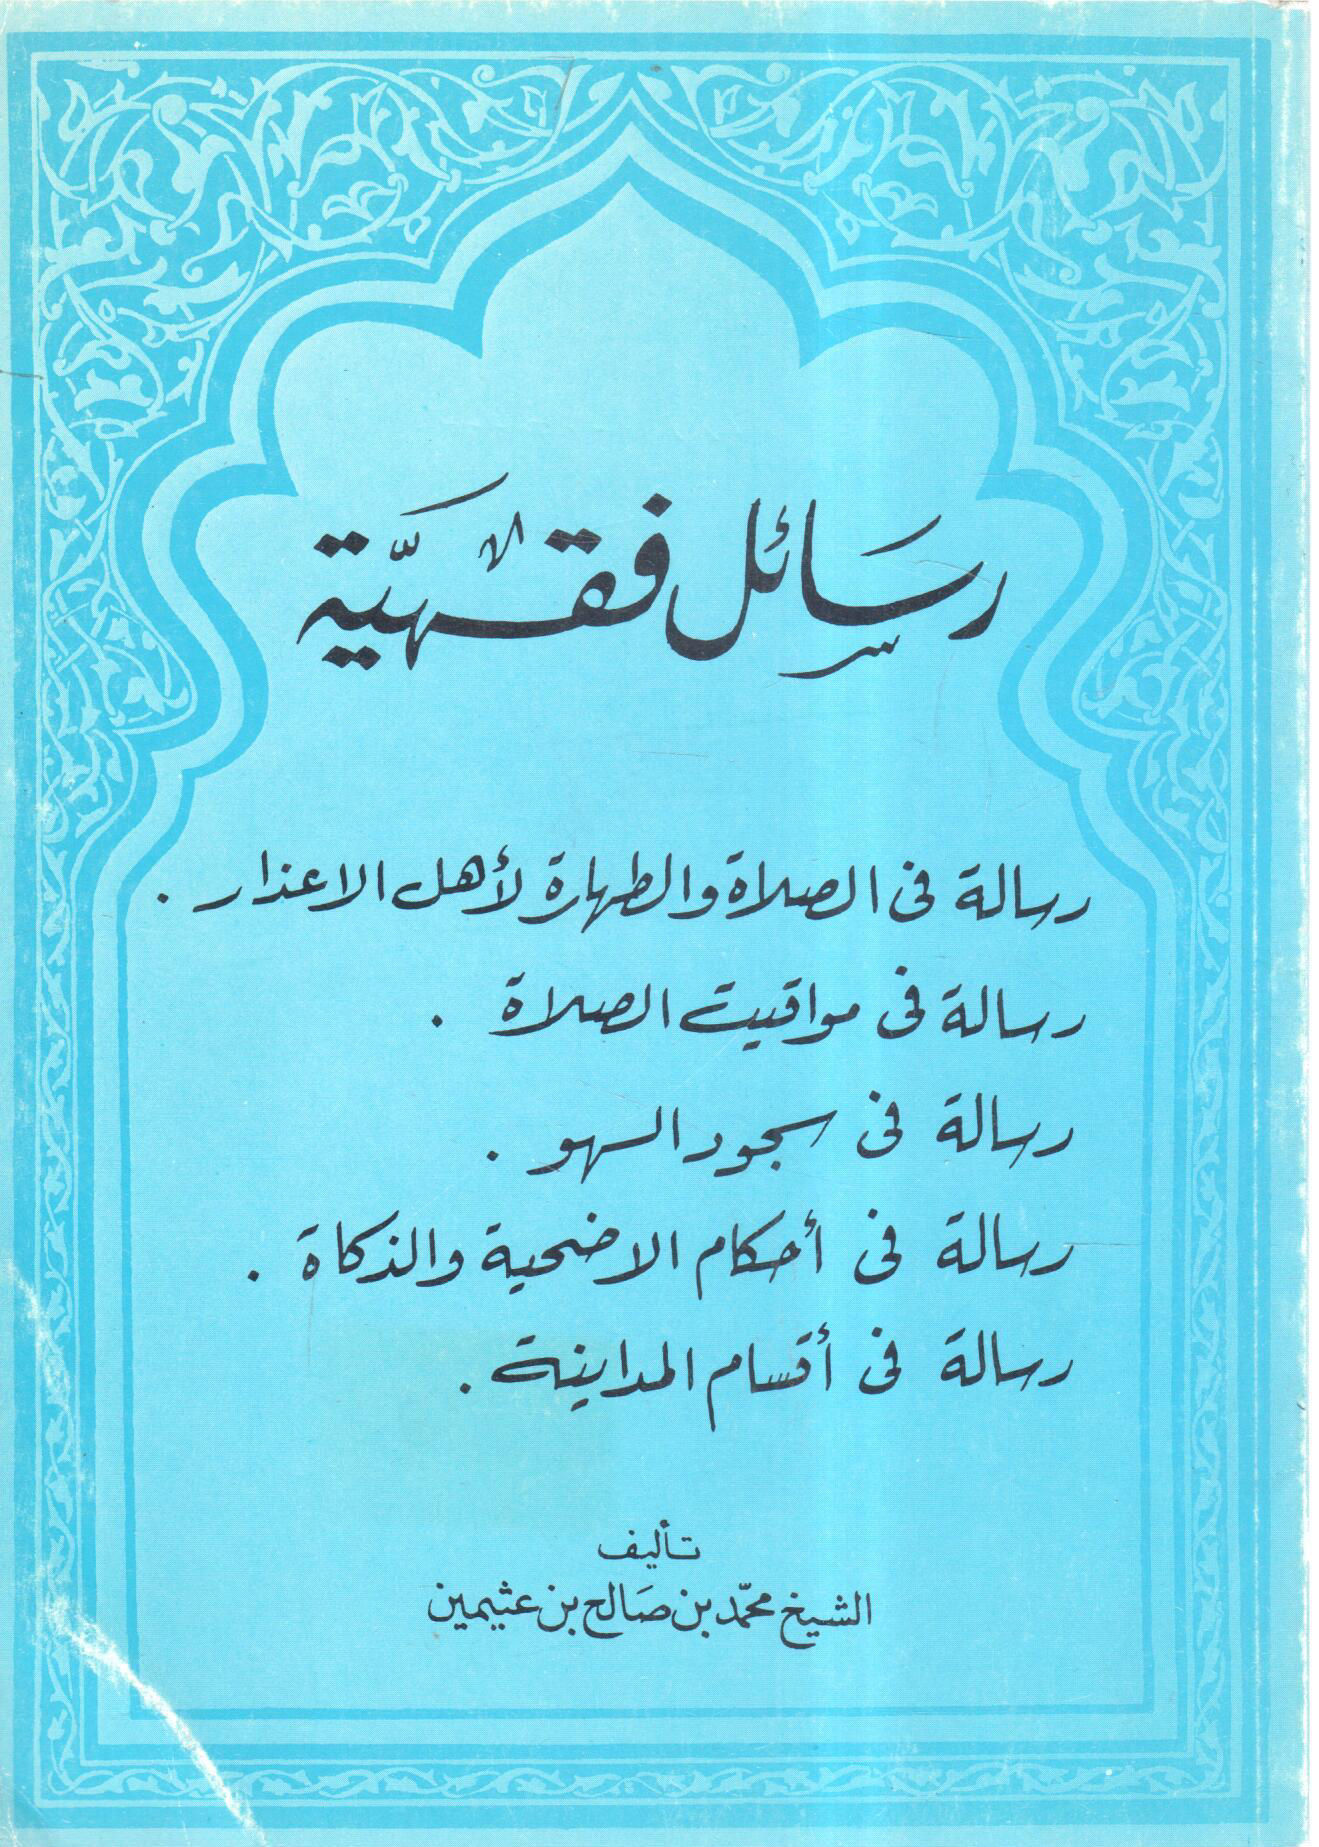 رسائل فقهيّة
رسالة فى الصلاة والطهارة لأهل الاعذار .
رسالة فى مواقيت الصلاة .
رسالة فى سجود السهو .
رسالة فى أحكام الاضحية والذكاة .
رسالة فى أقسام المداينة .
تأليف
الشيخ محمّد بن صَالح بن عثيمين